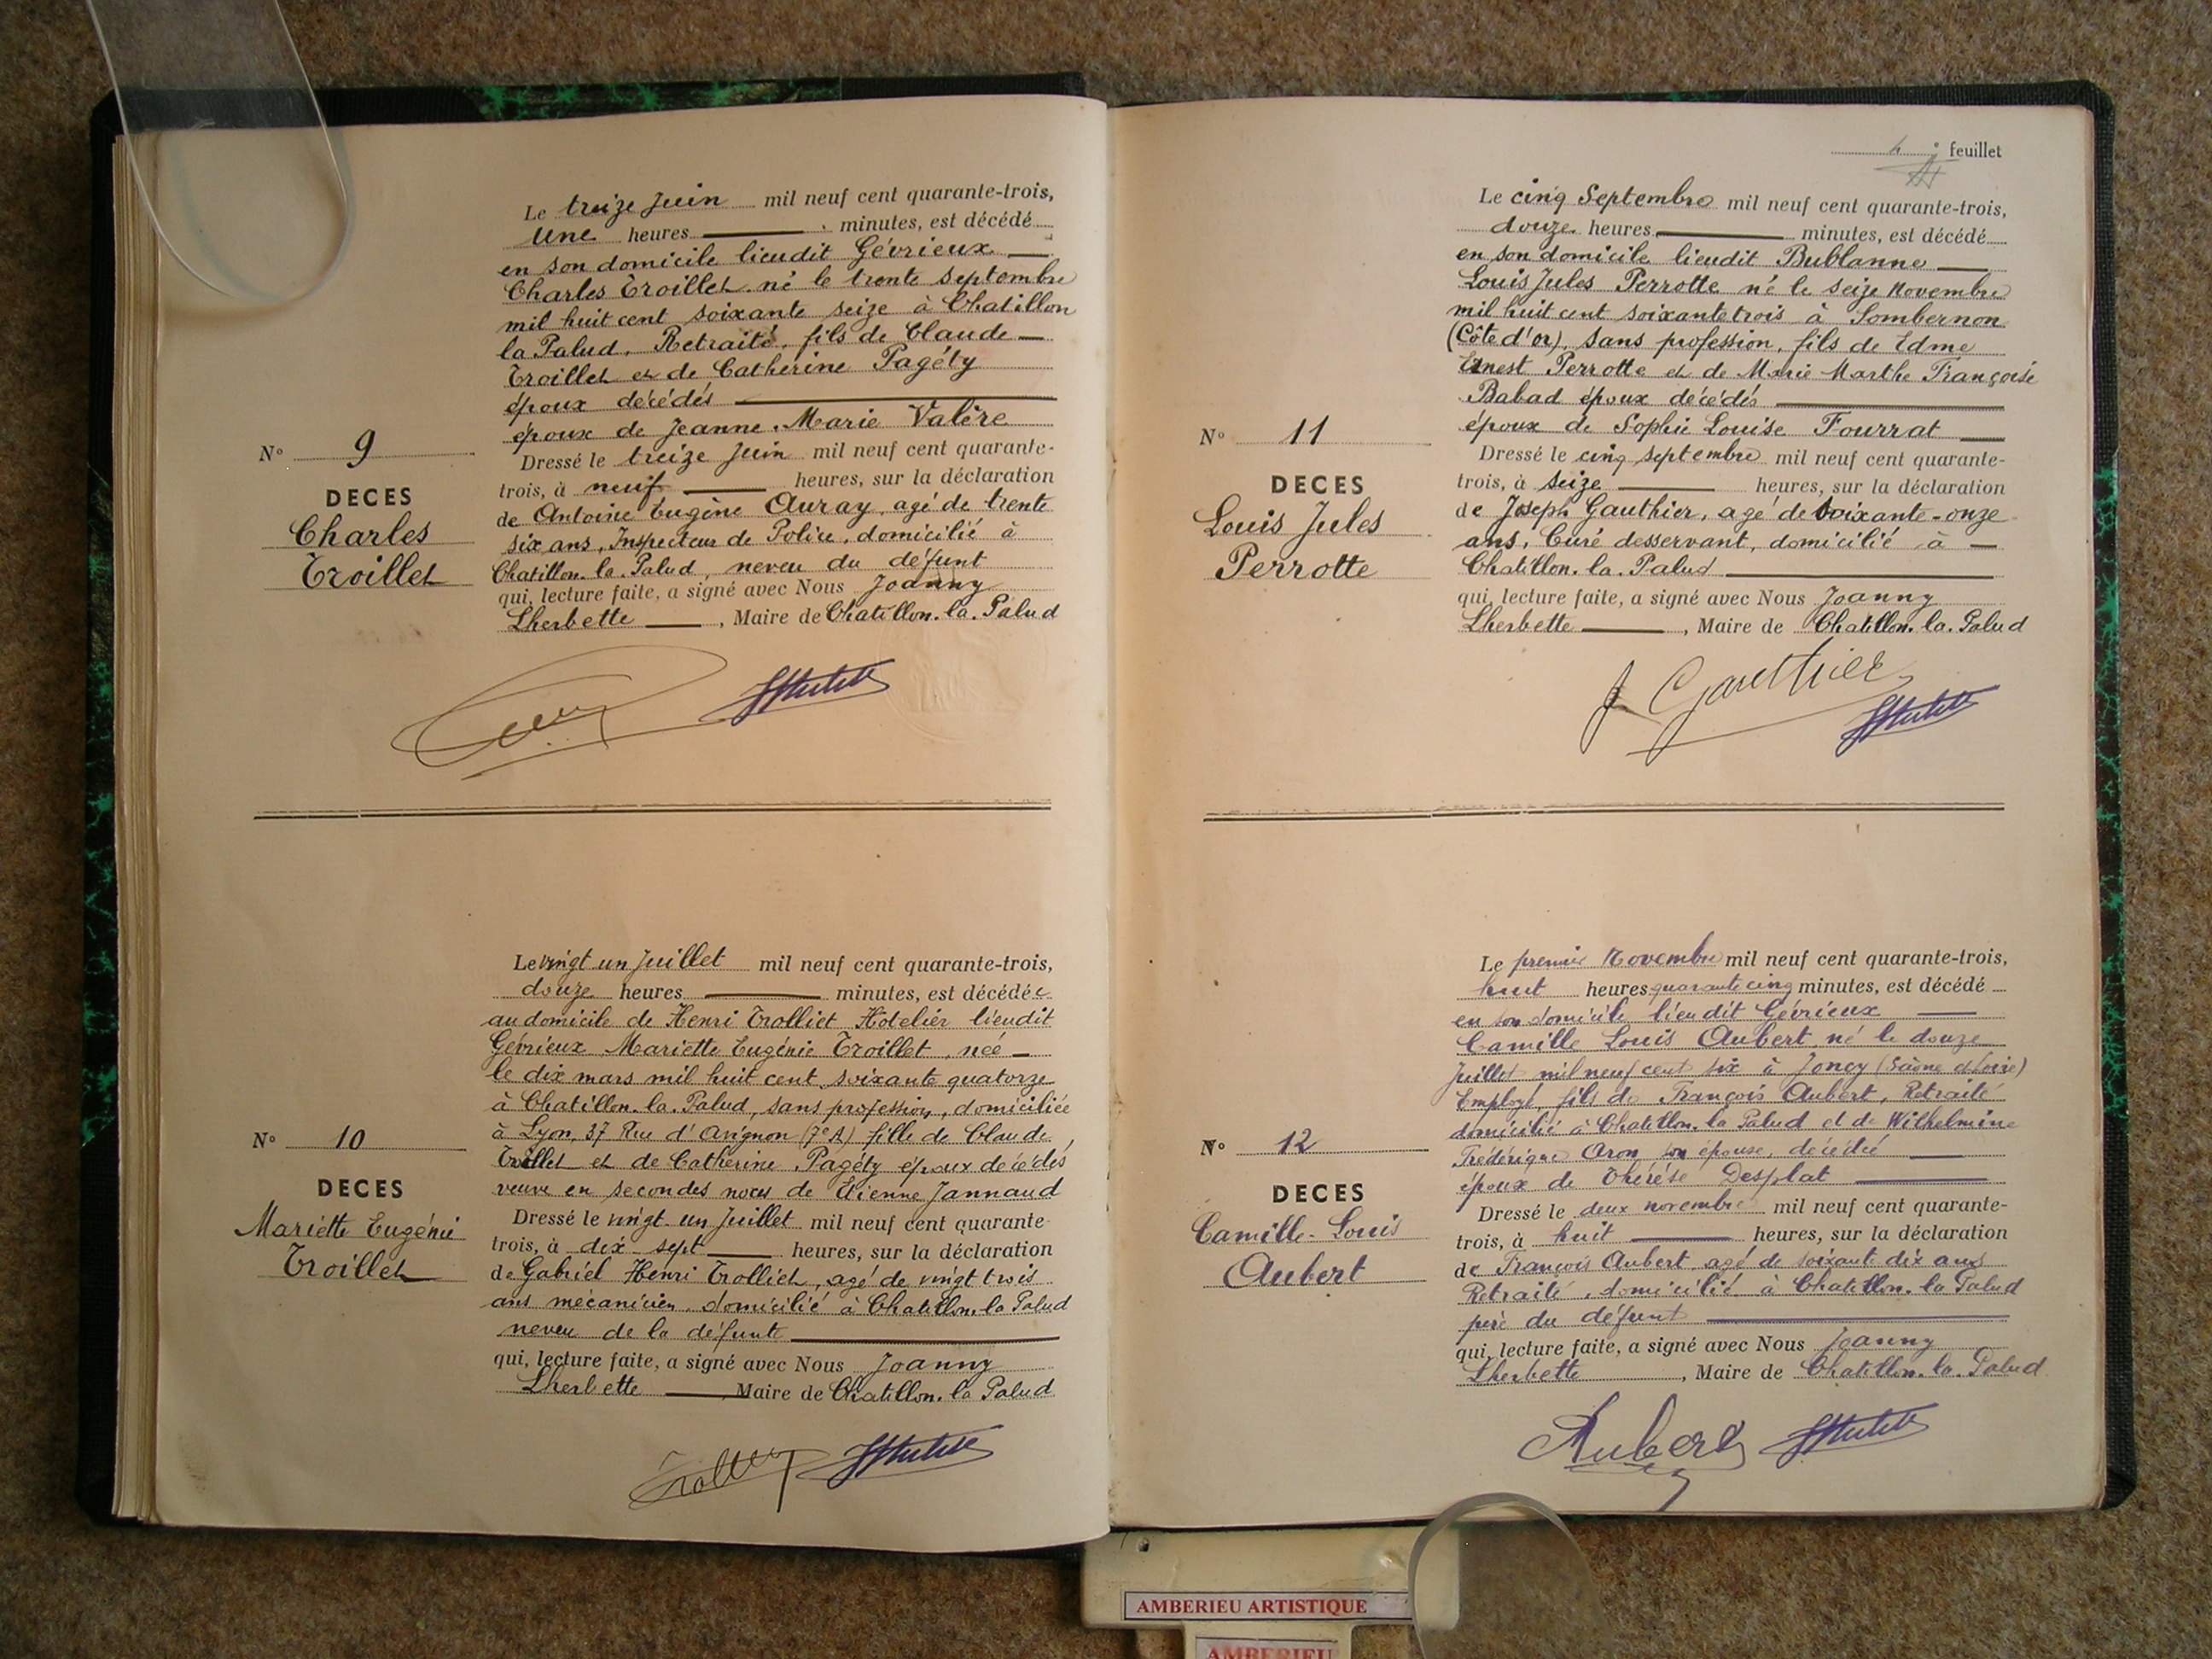 Le treize Juin mil neuf cent quarante-trois,
Une heures minutes, est décédé
en son domicile lieudit Gévrieux
Charles Troillet né le trente septembre
mil huit cent soixante seize à Chatillon
la Palud, Retraité, fils de Claude
Troillet et de Catherine Pagéty
époux décédés
époux de Jeanne Marie Valère
Nº 9
DECES
Charles
Troillet
Dressé le treize Juin mil neuf cent quarante-
trois, à neuf heures, sur la déclaration
de Antoine Eugène Auray, agé de trente
six ans, Inspecteur de Police, domicilié à
Chatillon. la. Palud, neveu du défunt
qui, lecture faite, a signé avec Nous Joanny
Lherbette, Maire de Chatillon. la. Palud
Le vingt un Juillet mil neuf cent quarante-trois,
douze heures minutes, est décédée
au domicile de Henri Trolliet Hotelier lieudit
Gévrieux Mariette Eugénie Troillet, née
le dix mars mil huit cent soixante quatorze
à Chatillon. la. Palud, sans profession, domiciliée
à Lyon, 37 Rue d'Avignon (7e A) fille de Claude
Troillet et de Catherine Pagéty époux décédés
veuve en secondes noces de Etienne Jannaud
Nº 10
DECES
Mariette Eugénie
Troillet
Dressé le vingt un Juillet mil neuf cent quarante
trois, à dix-sept heures, sur la déclaration
de Gabriel Henri Trolliet, agé de vingt trois
ans mécanicien domicilié à Chatillon. la Palud
neveu de la défunte
qui, lecture faite, a signé avec Nous Joanny
Lherbette Maire de Chatillon. la Palud
feuillet
Le cinq Septembre mil neuf cent quarante-trois,
douze heures minutes, est décédé
en son domicile lieudit Bublanne
Louis Jules Perrotte né le seize Novembre
mil huit cent soixante trois à Sombernon
(Côte d'or), sans profession, fils de Edme
Ernest Perrotte et de Marie Marthe Françoise
Babad époux décédés
époux de Sophie Louise Fourrat
Nº 11
DECES
Louis Jules
Perrotte
Dressé le cinq septembre mil neuf cent quarante-
trois, à seize heures, sur la déclaration
de Joseph Gauthier, agé de soixante-onze
ans, Curé desservant, domicilié à
Chatillon. la. Palud
qui, lecture faite, a signé avec Nous Joanny
Lherbette, Maire de Chatillon. la. Palud
J Gauthier
Le premier Novembre mil neuf cent quarante-trois,
huit heures quarante cinq minutes, est décédé
en son domicile lieudit Gévrieux
Camille Louis Aubert né le douze
Juillet mil neuf cent six à Joncy (Saône et Loire)
Employé, fils de François Aubert, Retraité
domicilié à Chatillon. la Palud et de Wilhelmine
Frédérique Aron son épouse, décédée
époux de Thérèse Desplat
Nº 12
DECES
Camille-Louis
Aubert
Dressé le deux novembre mil neuf cent quarante-
trois, à huit heures, sur la déclaration
de François Aubert agé de soixante dix ans
Retraité, domicilié à Chatillon. la Palud
père du défunt
qui, lecture faite, a signé avec Nous Joanny
Lherbette, Maire de Chatillon. la. Palud
Aubert
AMBERIEU ARTISTIQUE
AMBERIEU